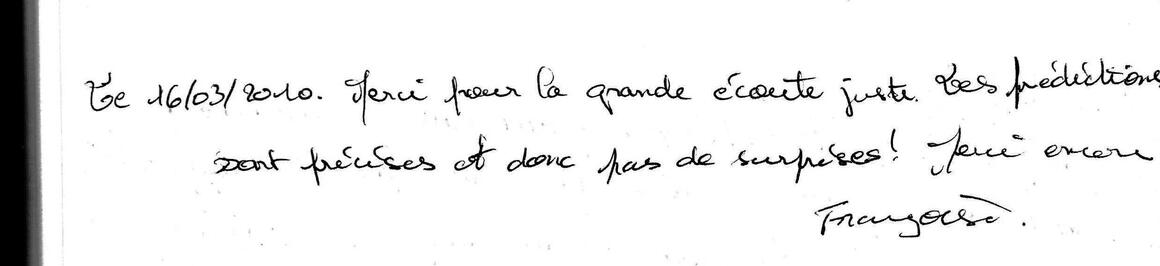 Le 16/03/2010. Merci pour la grande écoute juste. Les prédictions
sont précises et donc pas de surprises! Merci encore
Françoise.